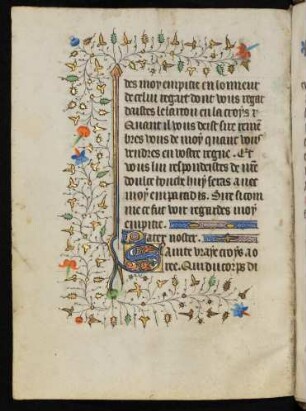 des moy en pitie en lonneur
de celui regart dont vous regar
dastes le larron en la croys et
Quant il vous deist sire remem
bres vous de moy quant vous
vendres en vostre regne . Et
vous lui respondistes de
doulce bouche huy seras avec
moy en paradis . Sire si com
me ce fut voir regardes moy
en pitie
Pater noster .
Sainte vraye croys ao
ree . Qui du corps di